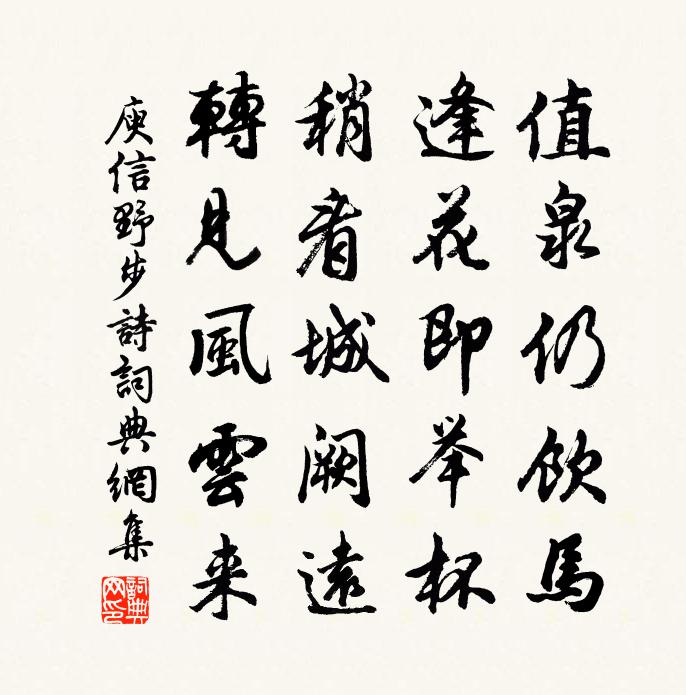 值泉仍飲馬
逢花即举杯
稍看城阙遠
轉見風雲来
庾信野步詩詞典網集
詞典網印